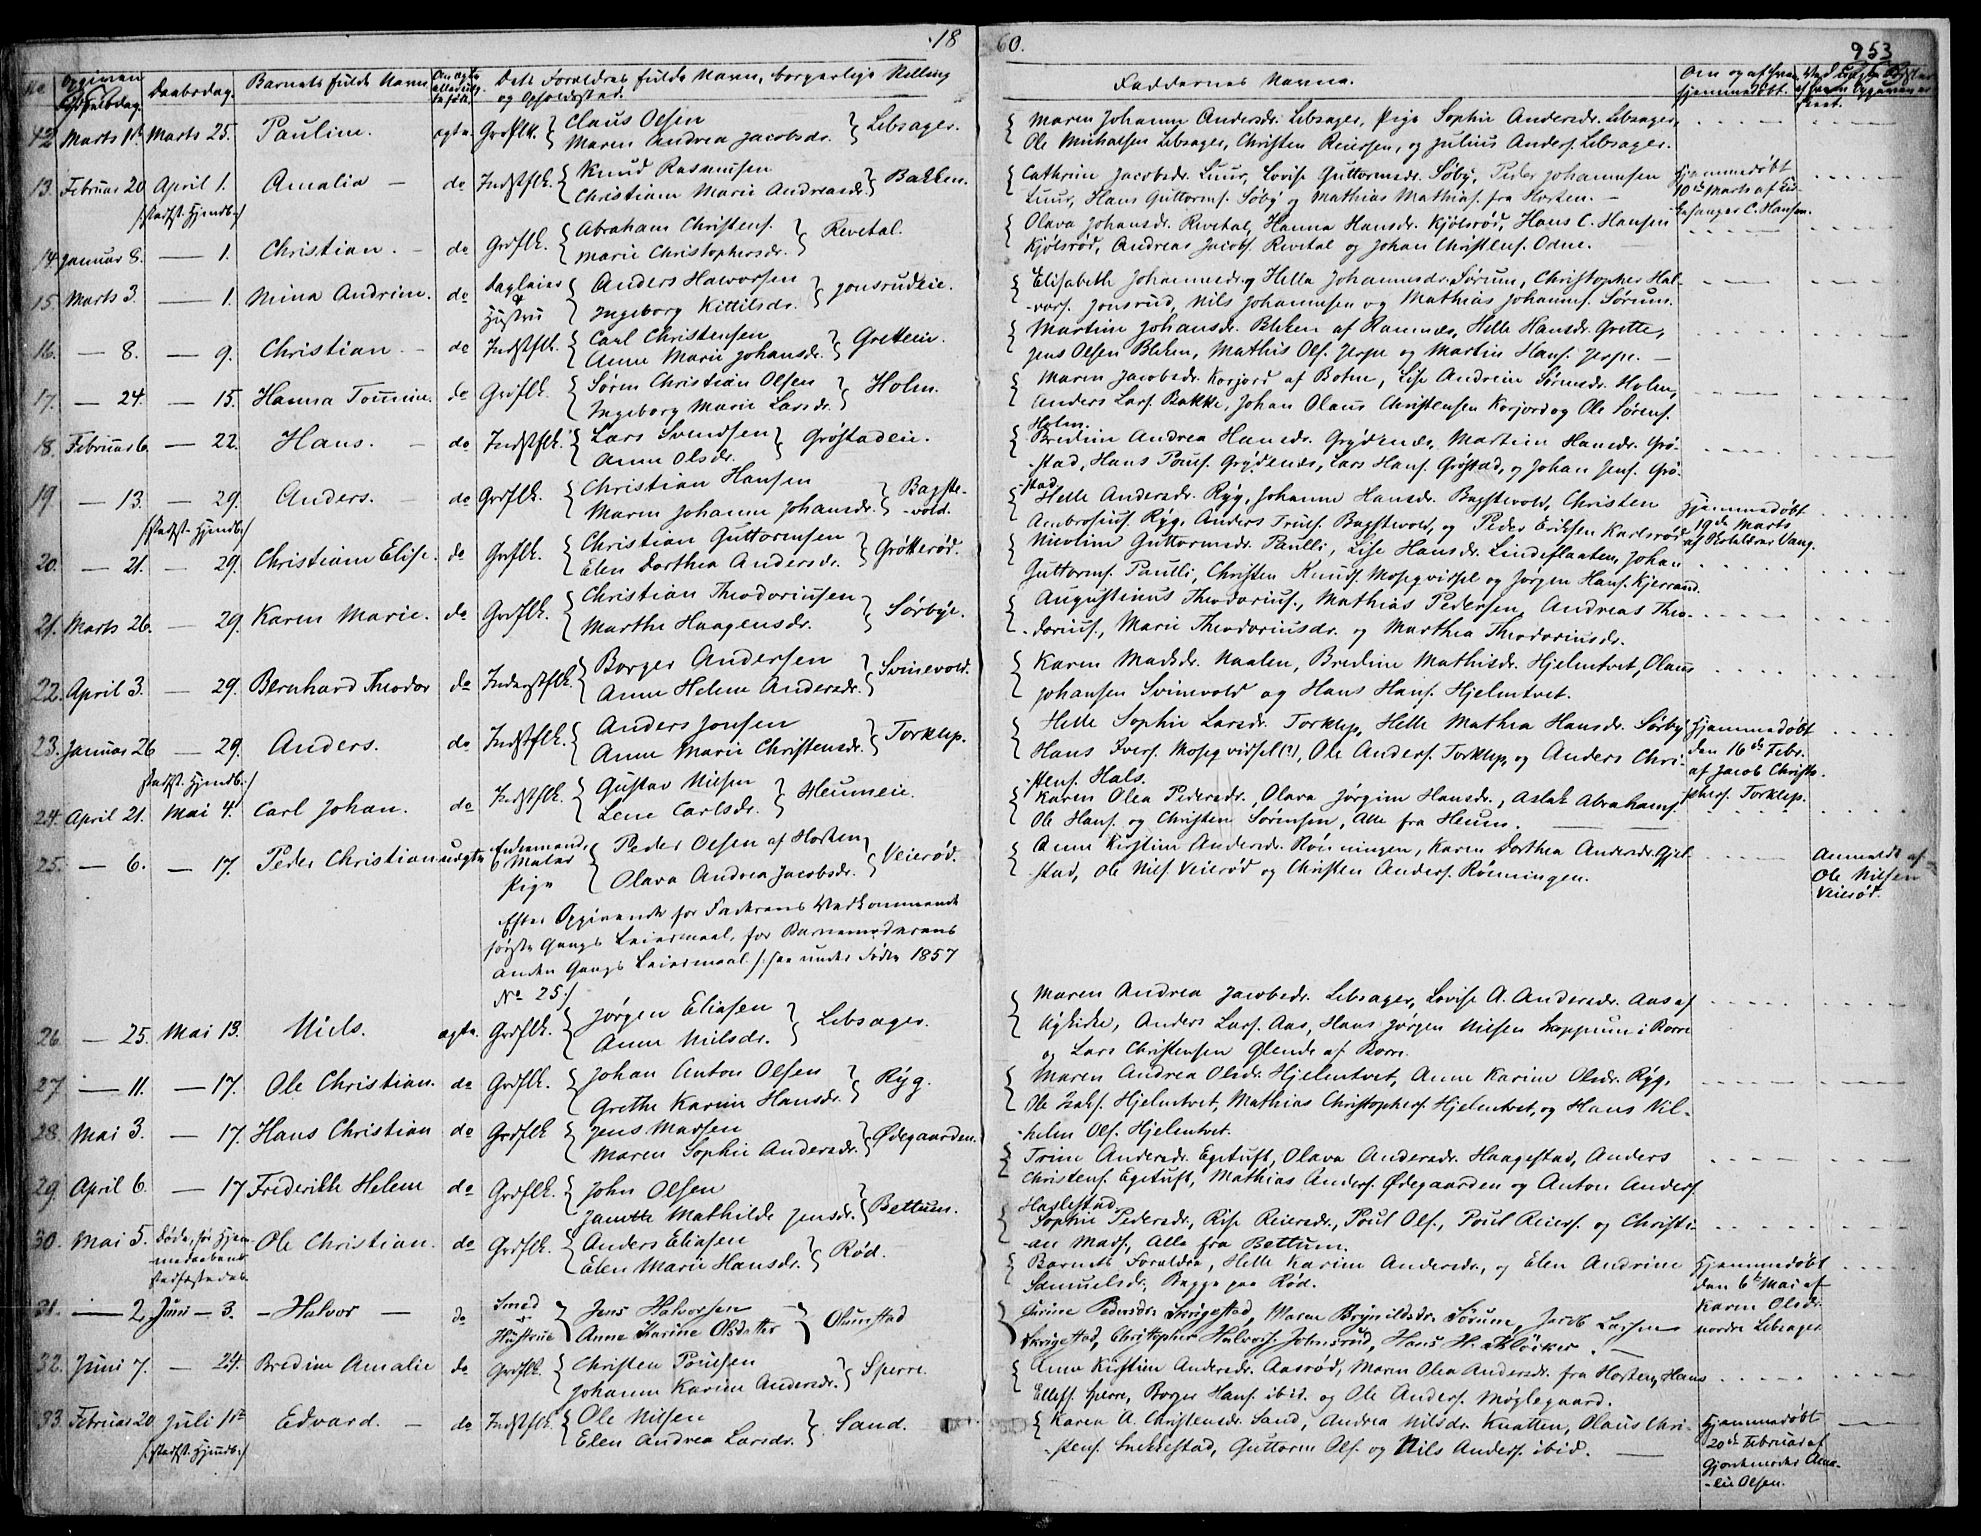 18
60.
953
No
Opgiven Fødselsdag.
Daabsdag.
Barnets fulde Navn
Om ægte eller uægte født.
Dets Forældres fulde Navn, borgerlige Stilling og Opholdssted.
Faddernes Navne.
Om og af hvem hjemmedøbt.
12 Marts 1ste Marts 25. Pauline. ægte Grdflk. { Claus Olsen
Maren Andrea Jacobsdr. } Lebsager.
{ Maren Johanne Andersdr. Lebsager, Pige Sophie Andersdr. Lebsager,
Ole Michaelsen Lebsager, Christen Reiersen, og Julius Anders. Lebsager.
13. Februar 20 April 1. Amalia – do Indstflk. { Knud Rasmusen
Christiane Marie Andreasdr. } Bakken.
/:stadfst. Hjemdb:/
{ Cathrine Jacobsdr. Luur, Lovise Guttormsdr. Søby, Peder Johannesen
Luur, Hans Guttorms. Søby og Mathias Mathias. fra Horten. –
Hjemmedøbt
10de Marts af
C. Hansen.
14. Januar 8. — 1. Christian. – do Grdflk. { Abraham Christens.
Marie Christophersdr. } Revetal.
{ Olava Johansdr. Revetal, Hanna Hansdr. Kjølsrød, Hans C. Hansen
Kjølsrød, Andreas Jacobs. Revetal og Johan Christens. Odne.
15. Marts 3. — 1. Mina Andrine. do Dagleier & Hustru { Anders Haworsen
Ingeborg Kittilsdr. } Jonsrudeie.
{ Elisabeth Johannesdr. og Helle Johannesdr. Sørum, Christopher Hal-
-vors. Jonsrud, Nils Johannesen og Mathias Johannes. Sørum.
16. — 8. — 9. Christian. – do Indstflk. { Carl Christensen
Anne Marie Johansdr. } Gretteie.
{ Martine Johansdr. Bleken af Ramnæs, Helle Hansdr. Grette,
Jens Olsen Bleken, Mathis Ols. Jerpe og Martin Hans. Jerpe. —
17. — 24. — 15. Hanna Tomine. do Grdflk. { Søren Christian Olsen
Ingeborg Marie Larsdr. } Holm.
{ Maren Jacobsdr. Korjord af Botne, Lise Andreine Sørensdr. Holm,
Anders Lars. Bakke, Johan Olaus Christensen Korjord og Ole Sørens.
Holm.
18. Februar 6. — 22. Hans. – do Indstflk. { Lars Svendsen
Anne Olsdr. } Grøstadeie.
{ Bredine Andrea Hansdr. Grydenæs, Martine Hansdr. Grø-
-stad, Hans Pouls. Grydenæs, Lars Hans. Grøstad, og Johan Jens. Grø-
-stad
19. — 13. — 29. Anders. – do Grdflk. { Christian Hansen
Maren Johanne Johansdr. } Bagste-
-vold.
/:stadfst. Hjemdb:/
{ Helle Andersdr. Ryg, Johanne Hansdr. Bagstevold, Christen
Ambrosius. Ryg, Anders Truls. Bagstevold, og Peder Eriksen Karlsrød
Hjemmedøbt
19de Marts
af Vang.
20. — 21. — 29. Christiane Elise. do Grdflk. { Christian Guttormsen
Elen Dorthea Andersdr. } Grøtterød.
Nicoline Guttormsdr. Paulli, Lise Hansdr. Lindeflaaten, Johan
Guttorms. Paulli, Christen Knuds. Moseqvidsel og Jørgen Hans. Kjerrand.
21. Marts 26. — 29. Karen Marie. do Grdflk. { Christian Theodoriusen
Marthe Haagensdr. } Sørbye.
{ Augustinus Theodorius., Mathias Pedersen, Andreas Theo-
-dorius., Marie Theodoriusdr. og Marthea Theodoriusdr.
22. April 3. — 29. Bernhard Theodor do Inderstflk. { Borger Andersen
Anne Helene Andersdr. } Svinevold.
{ Karen Madsdr. Naalen, Bredine Mathisdr. Hjelmtvet, Olaus
Johansen Svinevold og Hans Hans. Hjelmtvet.
23. Januar 26 — 29. Anders. do Indstflk. { Anders Jonsen
Anne Marie Christensdr. } Torklep.
/:stadfst. Hjemdb:/
{ Helle Sophie Larsdr. Torklep, Helle Mathea Hansdr. Sørby
Hans Ivers. Moseqvidsel(?), Ole Anders. Torklep, og Anders Chri-
-stens. Hals.
Hjemmedøbt
den 16de Febr.
af Jacob Christo-
phers. Torklep.
24. April 21. Mai 4. Carl Johan. do Indstflk. { Gustav Nielsen
Lene Carlsdr. } Heumeie.
{ Karen Olea Pedersdr., Olava Jørgine Hansdr., Aslak Abrahams.
Ole Hans. og Christen Sørensen, Alle fra Heum.
25. — 6. — 17. Peder Christian uægte & Matas Pige { Peder Olsen af Horten
Olava Andrea Jacobsdr. } Veierød.
{ Anne Kirstine Andersdr. Rønningen, Karen Dorthea Andersdr. Gjel-
stad, Ole Nils. Veierød og Christen Anders. Rønningen.
Anmeldt af
Ole Nilsen
Veierød.
Efter Opgivende for Faderens Vedkommende
første Gangs Leiermaal, for Barnemoderens
anden Gangs Leiermaal. /: see under Føden 1857
No 25:/
26. — 25. Mai 13. Niels. ægte. Grdflk. { Jørgen Eliasen
Anne Nielsdr. } Lebsager.
{ Maren Andrea Jacobsdr. Lebsager, Lovise A. Andersdr. Aas af
Nykirke, Anders Lars. Aas, Hans Jørgen Nielsen i Borre
og Lars Christensen Glende af Borre.
27. — 11. — 17. Ole Christian. do Grdflk. { Johan Anton Olsen
Grethe Karine Hansdr. } Ryg.
{ Maren Andrea Olsdr. Hjelmtvet, Anne Karine Olsdr. Ryg,
Ole Isaks. Hjelmtvet, Mathias Christophers. Hjelmtvet, og Hans Vil-
-helm Ols. Hjelmtvet.
28. Mai 3. — 17. Hans Christian do Grdflk { Jens Madsen
Maren Sophie Andersdr. } Ødegaarden.
{ Trine Andersdr. Egetuft, Olava Andersdr. Haagestad, Anders
Christens. Egetuft, Mathias Anders. Ødegaarden og Anton Anders.
Haslestad
29. April 6. — 17 Frederikke Helene do Grdflk. { John Olsen
Janette Mathilde Jensdr. } Bettum.
{ Sophie Pedersdr., Rise Reiersdr., Poul Ols., Poul Reiers. og Christi-
-an Mads., Alle fra Bettum.
30. Mai 5. Døde, før Hjem-
-medaaben
stadfæstedes. Ole Christian. do Grdflk. { Anders Eliasen
Elen Marie Hansdr. } Rød.
{ Barnets Forældre, Helle Karine Andersdr., og Elen Andrine
Samuelsdr. Bagge paa Rød.
Hjemmedøbt
den 6te Mai af
Karen Olsdr.
nordre Lebsager
31. — 2. Juni — 3. – Halvor – do Smed & Hustrue } Jens Halvorsen
Anne Karine Olsdatter } Olumstad
Sirine Pedersdr. Skrigestad, Maren Brynildsdr. Sørum, Jacob Larsen
Skrigestad, Christopher Halvors. Johnsrud, Hans H. Kløcker.
32. Juni 7. — 24. Bredine Amalie do Grdflk. { Christen Poulsen
Johanne Karine Andersdr. } Sperre.
{ Anne Kirstine Andersdr. Aasrød, Maren Olea Andersdr. fra Horten, Hans
Ellefs. Sperre, Borger Hans. ibid. og Ole Anders. Møglegaard.
33. Februar 20 Juli 1ste Edvard. – do Indstflk. { Ole Nilsen
Elen Andrea Larsdr. } Sand.
/:stadfst. Hjemdb:/
{ Karen A. Christensdr. Sand, Andrea Nilsdr. Knatten, Olaus Chri-
-stens. Snekkestad, Guttorm Ols. og Nils Anders. ibid. —
Hjemmedøbt
20de Februar af
Gjordemoder Ama-
-lie Olsen.